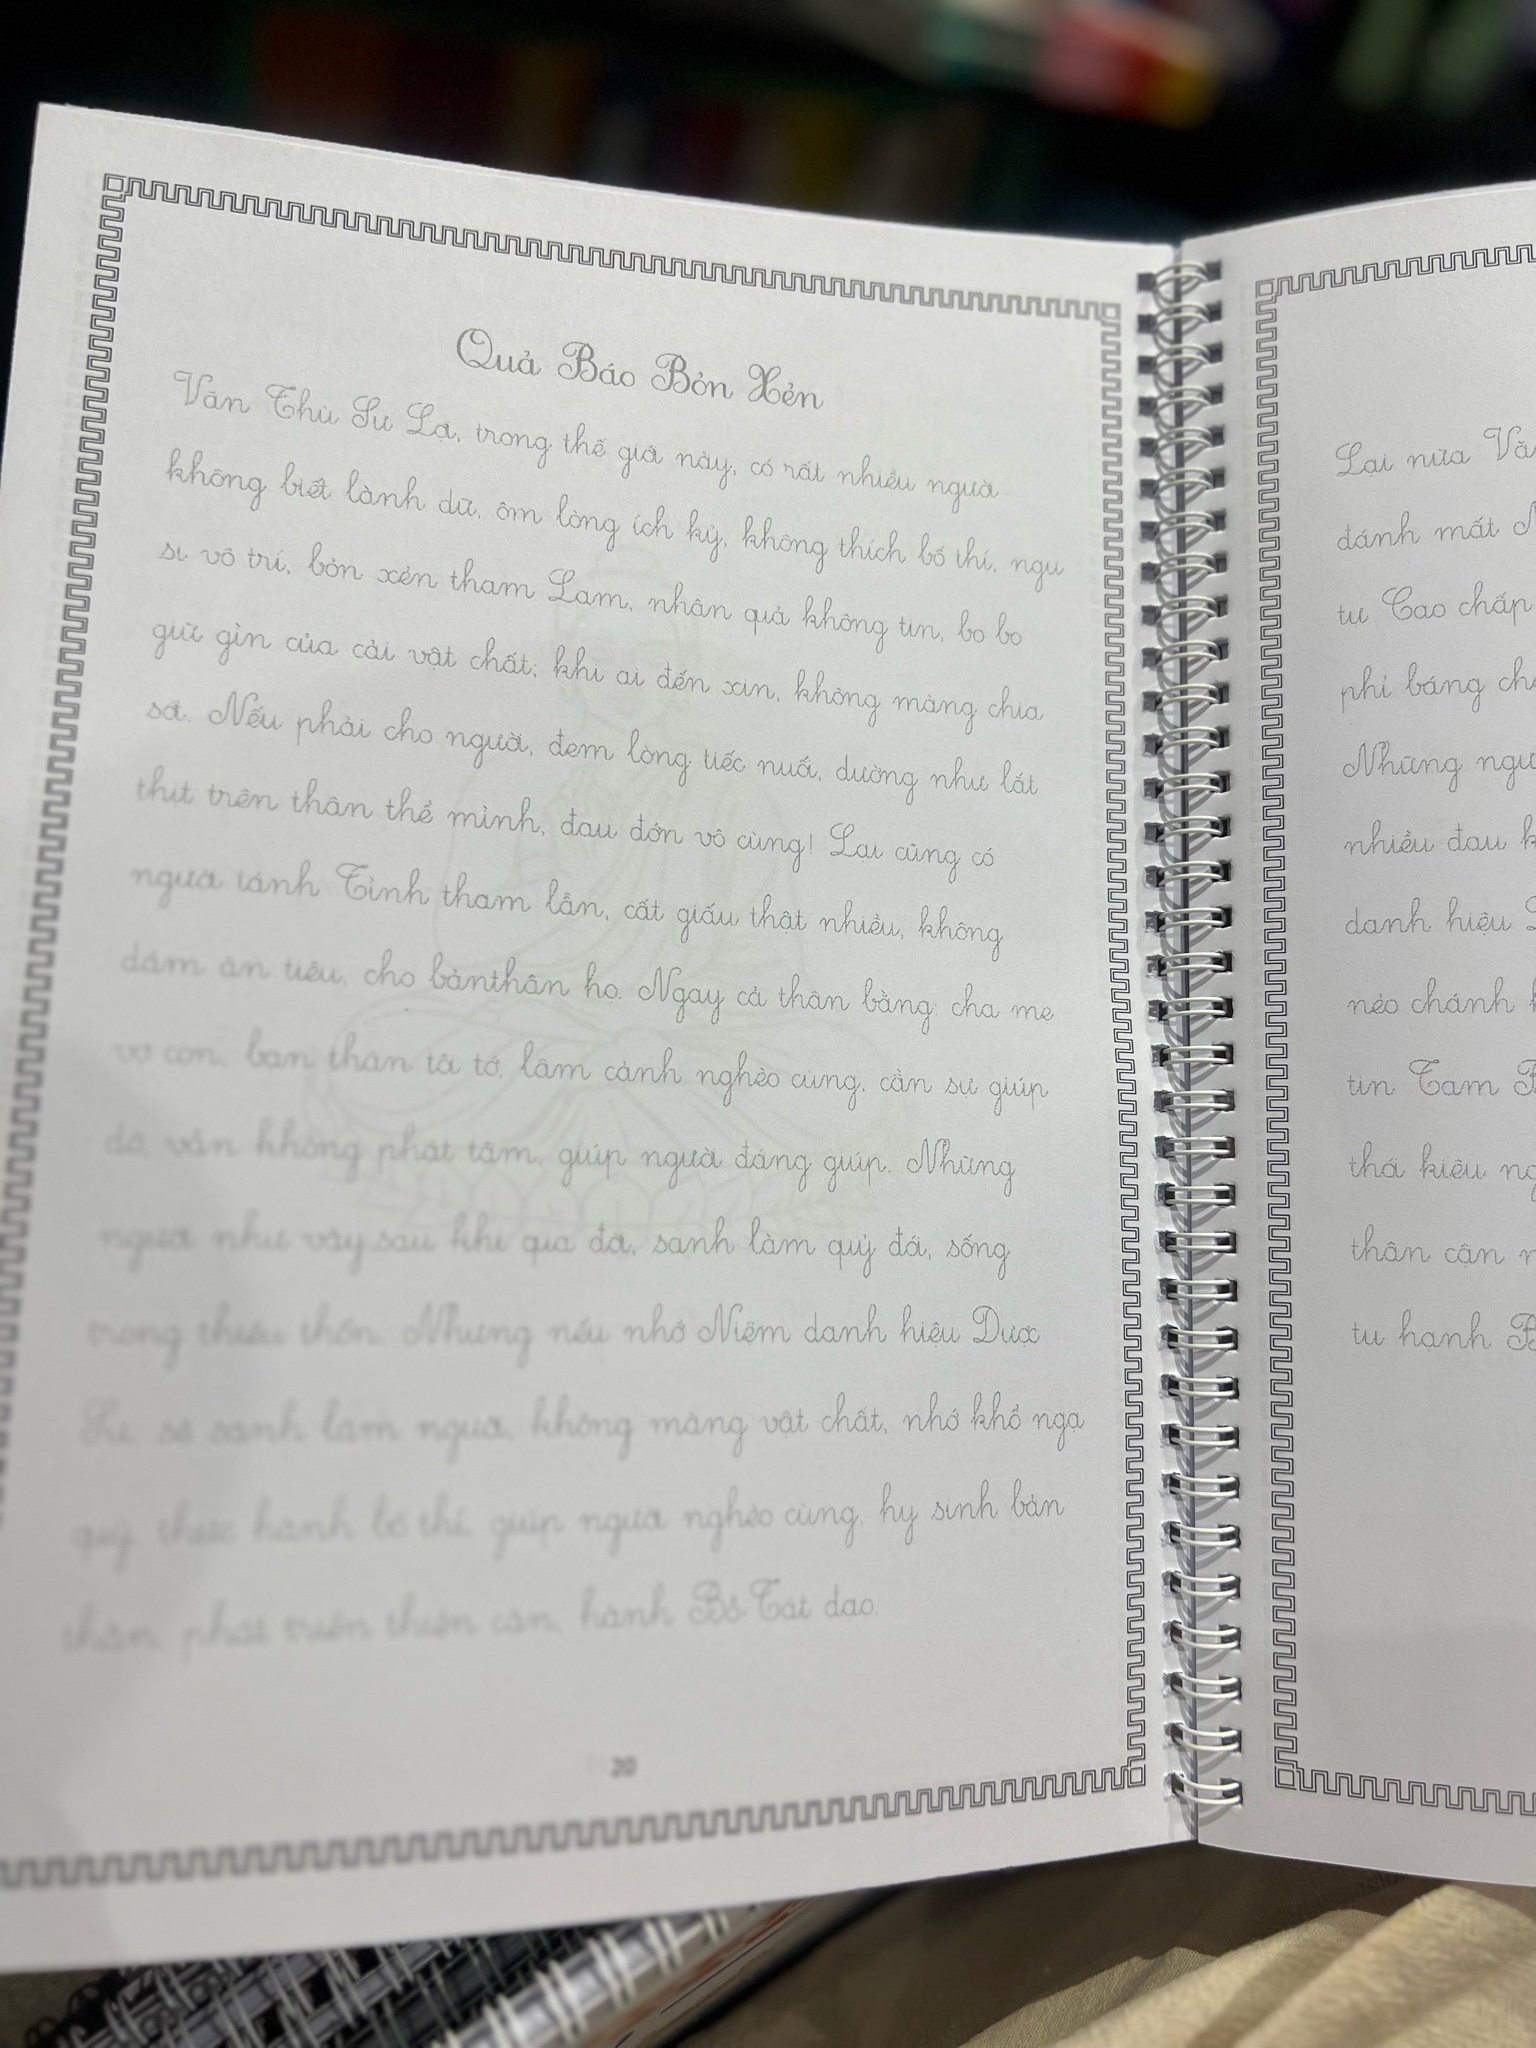 Quả Báo Bỏn Xẻn
Văn Thù Sư Lợi, trong thế giới này, có rất nhiều người
không biết lành dữ, ôm lòng ích kỷ, không thích bố thí, ngu
si vô trí, bỏn xẻn tham Lam, nhân quả không tin, bo bo
giữ gìn của cải vật chất; khi ai đến xin, không màng chia
sớt. Nếu phải cho người, đem lòng tiếc nuối, dường như lắt
thịt trên thân thể mình, đau đớn vô cùng! Lại cũng có
người tánh Tình tham lẫn, cất giấu thật nhiều, không
dám ăn tiêu, cho bảnthân họ. Ngay cả thân bằng: cha mẹ
vợ con, bạn thân tôi tớ, lâm cảnh nghèo cùng, cần sự giúp
đỡ, vẫn không phát tâm, giúp người đáng giúp. Những
người như vậy,sau khi qua đời, sanh làm quỷ đói, sống
trong thiếu thốn. Nhưng nếu nhớ Niệm danh hiệu Dược
Sư, sẽ sanh làm người, không màng vật chất, nhớ khổ ngạ
quỷ, thực hành bố thí, giúp người nghèo cùng, hy sinh bản
thân, phát triển thiện căn, hành Bồ-Tát đạo.
20
Lại nữa
đánh mất
tu Cao chấp
phỉ báng
Những
nhiều đau
danh hiệu
nẻo chánh
tin Tam
thói kiêu
thân cận
tu hạnh